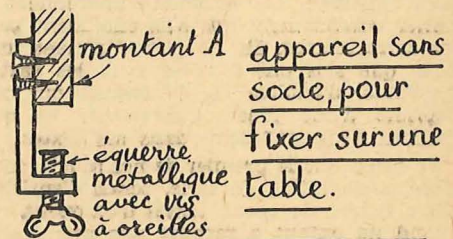 montant A
équerre
métallique
avec vis
à oreilles
appareil sans
socle, pour
fixer sur une
table.